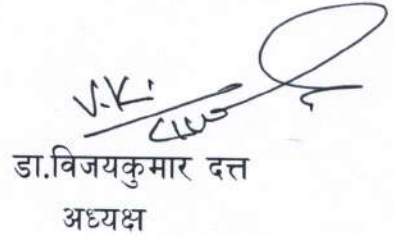 V.K.
डा.विजयकुमार दत्त
अध्यक्ष